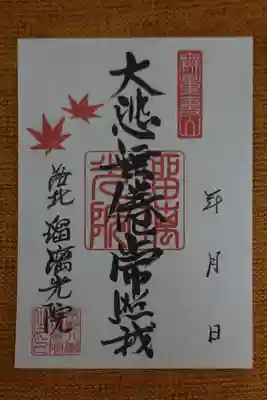 年 月 日
大悲無倦常照我
洛北 瑠璃光院